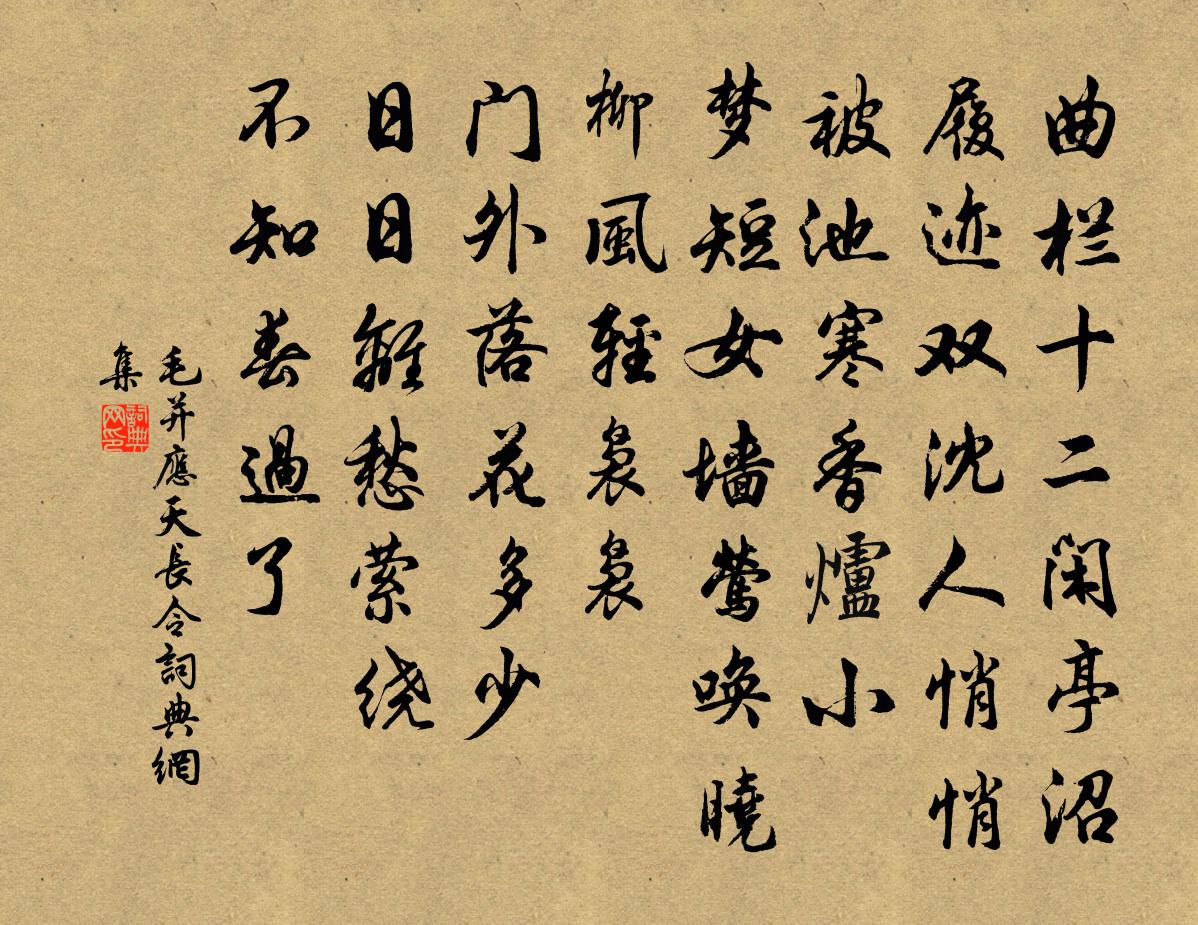 曲栏十二闲亭沼
履迹双沈人悄悄
被池寒香爐小
梦短女墙莺唤曉
柳風輕袅袅
门外落花多少
日日離愁萦绕
不知春過了
毛幵應天長令詞典網
集
詞典网印